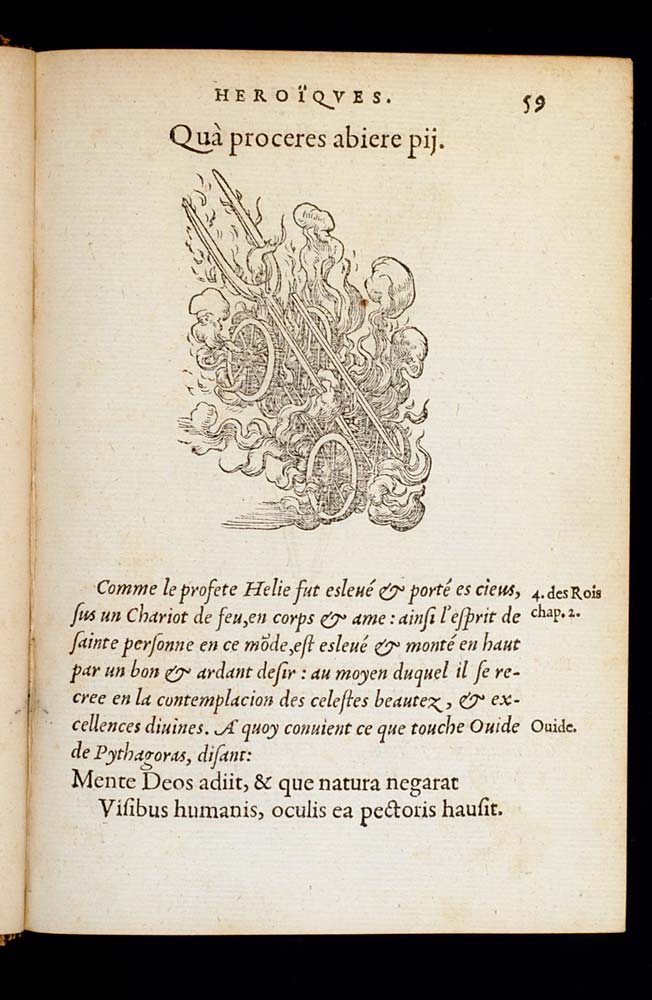 HEROÏQVES. 59
Quà proceres abiere pij.
Comme le profete Helie fut esleué & porté es cieus,
sus un Chariot de feu, en corps & ame : ainsi l'esprit de
sainte personne en ce mõde, est esleué & monté en haut
par un bon & ardant desir : au moyen duquel il se re-
cree en la contemplacion des celestes beautez, & ex-
cellences diuines. A quoy conuient ce que touche Ouide
de Pythagoras, disant:
Mente Deos adiit, & que natura negarat
Visibus humanis, oculis ea pectoris hausit.
4. des Rois
chap. 2.
Ouide.